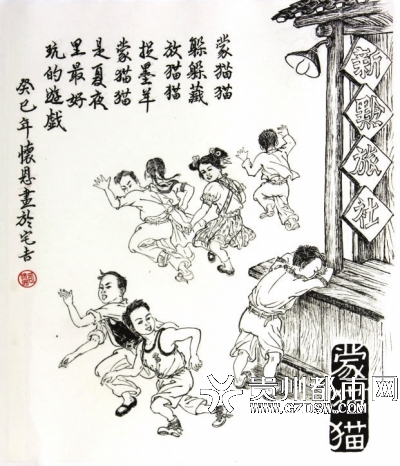 蒙猫猫
躲躲藏
放猫猫
捉墨羊
蒙猫猫
是夏夜
里最好
玩的遊戲
癸巳年懷恩畫於宅吉
新點旅社
蒙猫猫
贵州都市网
www.GZDSW.com